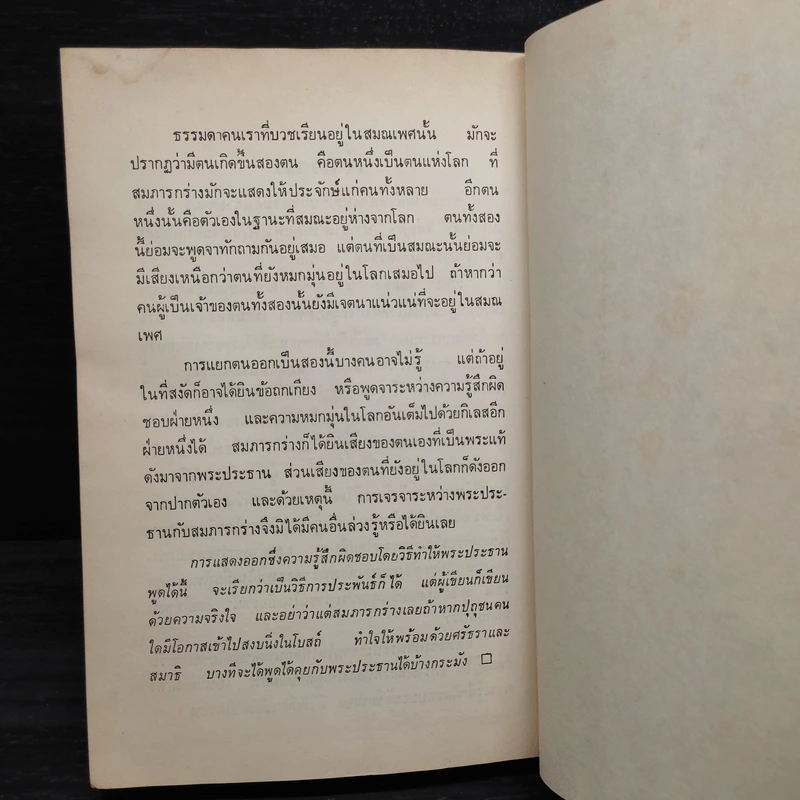 ธรรมดาคนเราที่บวชเรียนอยู่ในสมณเพศนั้น มักจะ
ปรากฏว่ามีตนเกิดขึ้นสองตน คือตนหนึ่งเป็นตนแห่งโลก ที่
สมภารกร่างมักจะแสดงให้ประจักษ์แก่คนทั้งหลาย อีกตน
หนึ่งนั้นคือตัวเองในฐานะที่สมณะอยู่ห่างจากโลก ตนทั้งสอง
นี้ย่อมจะพูดจาทักถามกันอยู่เสมอ แต่ตนที่เป็นสมณะนั้นย่อมจะ
มีเสียงเหนือกว่าตนที่ยังหมกมุ่นอยู่ในโลกเสมอไป ถ้าหากว่า
คนผู้เป็นเจ้าของตนทั้งสองนั้นยังมีเจตนาแน่วแน่ที่จะอยู่ในสมณ
เพศ
การแยกตนออกเป็นสองนี้บางคนอาจไม่รู้ แต่ถ้าอยู่
ในที่สงัดก็อาจได้ยินข้อถกเถียง หรือพูดจาระหว่างความรู้สึกผิด
ชอบฝ่ายหนึ่ง และความหมกมุ่นในโลกอันเต็มไปด้วยกิเลสอีก
ฝ่ายหนึ่งได้ สมภารกร่างก็ได้ยินเสียงของตนเองที่เป็นพระแท้
ดังมาจากพระประธาน ส่วนเสียงของตนที่ยังอยู่ในโลกก็ดังออก
จากปากตัวเอง และด้วยเหตุนี้ การเจรจาระหว่างพระประ-
ธานกับสมภารกร่างจึงมิได้มีคนอื่นล่วงรู้หรือได้ยินเลย
การแสดงออกซึ่งความรู้สึกผิดชอบโดยวิธีทำให้พระประธาน
พูดได้นี้ จะเรียกว่าเป็นวิธีการประพันธ์ก็ได้ แต่ผู้เขียนก็เขียน
ด้วยความจริงใจ และอย่าว่าแต่สมภารกร่างเลยถ้าหากปุถุชนคน
ใดมีโอกาสเข้าไปสงบนิ่งในโบสถ์ ทำใจให้พร้อมด้วยศรัธราและ
สมาธิ บางทีจะได้พูดได้คุยกับพระประธานได้บ้างกระมัง □